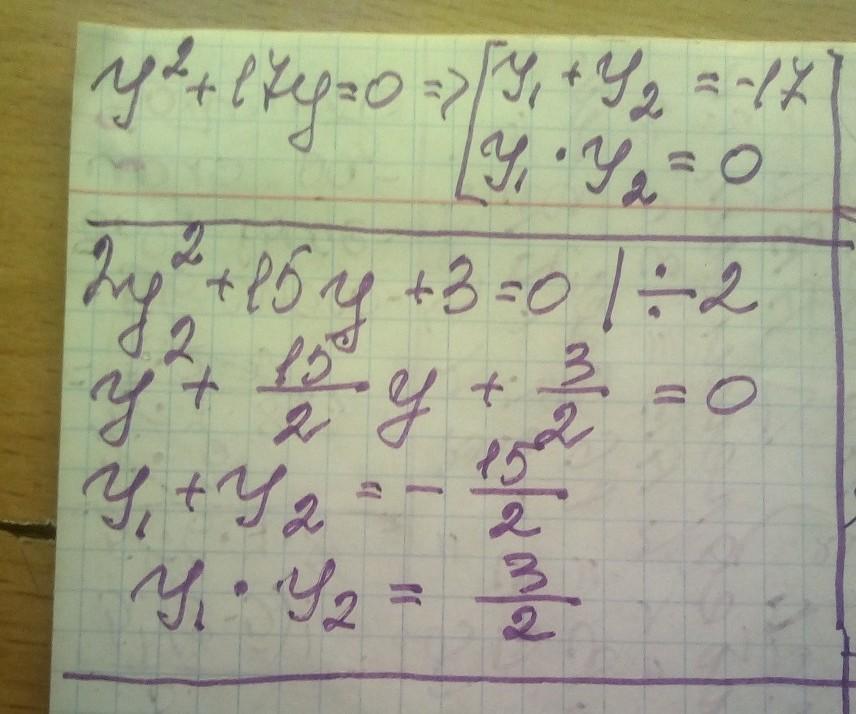 y² + 17y = 0 => [ y₁ + y₂ = -17
y₁ · y₂ = 0
2y² + 15y + 3 = 0 | ÷ 2
y² + 15/2 y + 3/2 = 0
y₁ + y₂ = - 15/2
y₁ · y₂ = 3/2